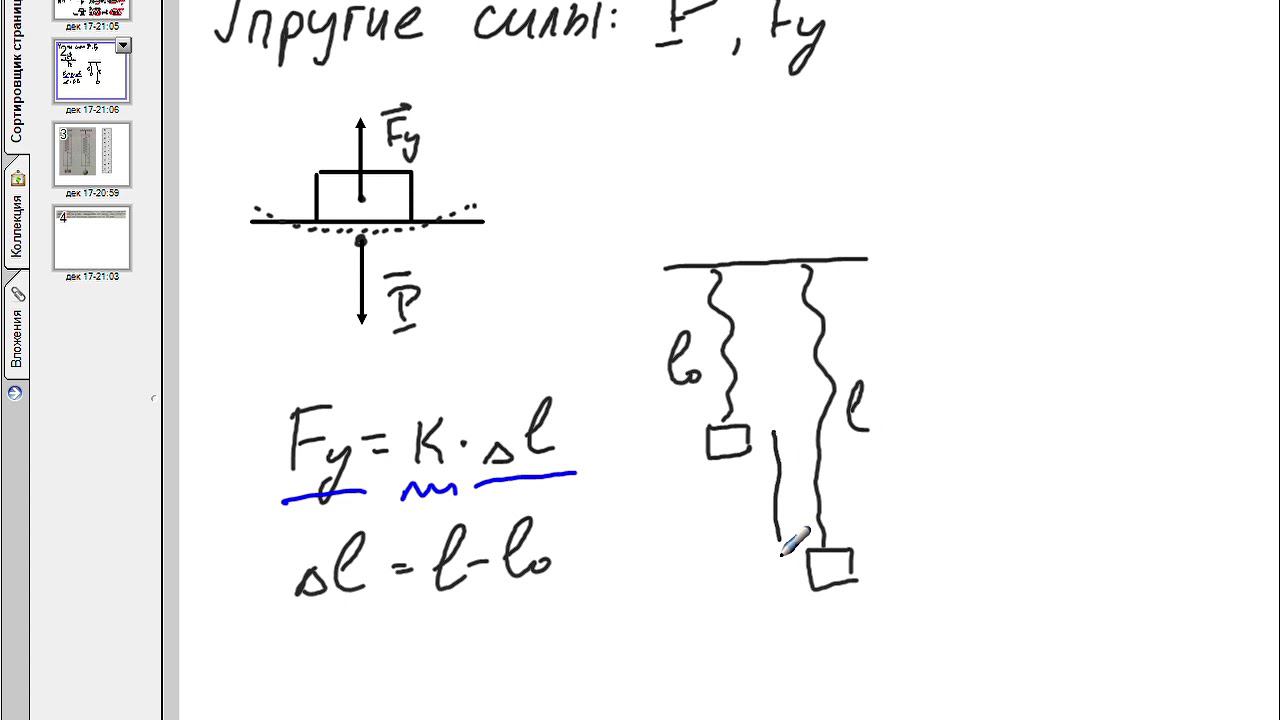 Сортировщик страниц
Коллекция
Вложения
дек 17-21:05
дек 17-21:06
3
дек 17-20:59
4
дек 17-21:03
Упругие силы: P, Fy
Fy
P
Fy = K · Δl
Δl = l - l₀
l₀
l